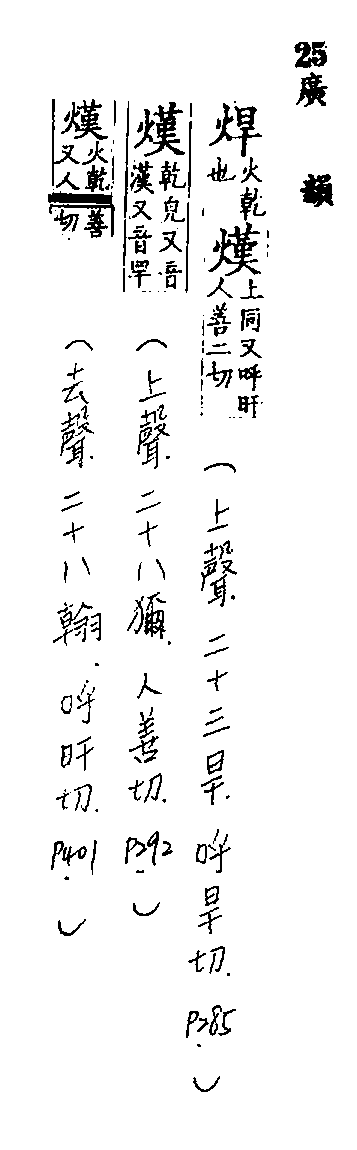 25
廣韻
焊火乾也熯上同又呼旰人善二切
(上聲.二十三旱.呼旱切.P285.)
熯乾皃又音漢又音罕
(上聲.二十八獮.人善切.P292.)
熯火乾又人善切
(去聲.二十八翰.呼旰切.P401.)